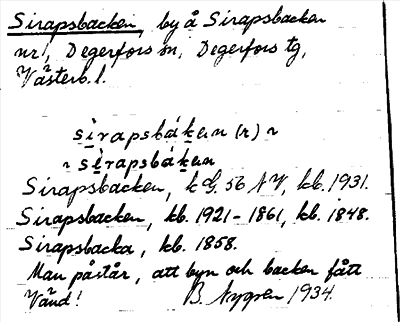 Sirapsbacken, by å Sirapsbacken
nr 1, Degerfors sn, Degerfors tg,
Västerb. l.
sirapsbákɐn (r) ~
~ sìrapsbákɐn
Sirapsbacken, k G. 56 NV, kb. 1931.
Sirapsbacken, kb. 1921-1861, kb. 1848.
Sirapsbacka, kb. 1858.
Man påstår, att byn och backen fått
Vänd! B. Nygren 1934.